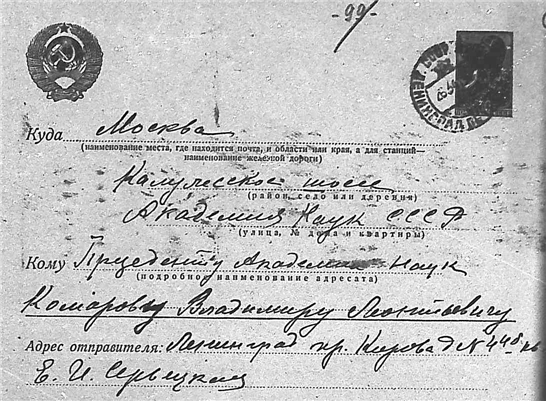 -99-
ЛЕНИНГРАД
Куда Москва
(наименование места, где находится почта, и области или края, а для станций—
наименование железной дороги)
Калужское шоссе
(район, село или деревня)
Академия Наук СССР
(улица, № дома и квартиры)
Кому Президенту Академии наук
(подробное наименование адресата)
Комарову Владимиру Леонтьевичу
Адрес отправителя: Ленинград пр. Кирова д N 44б кв
Е. И.